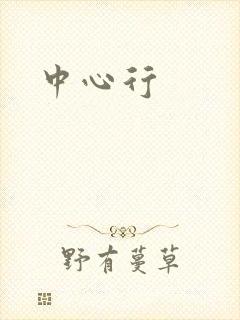 中心行
野有蔓草